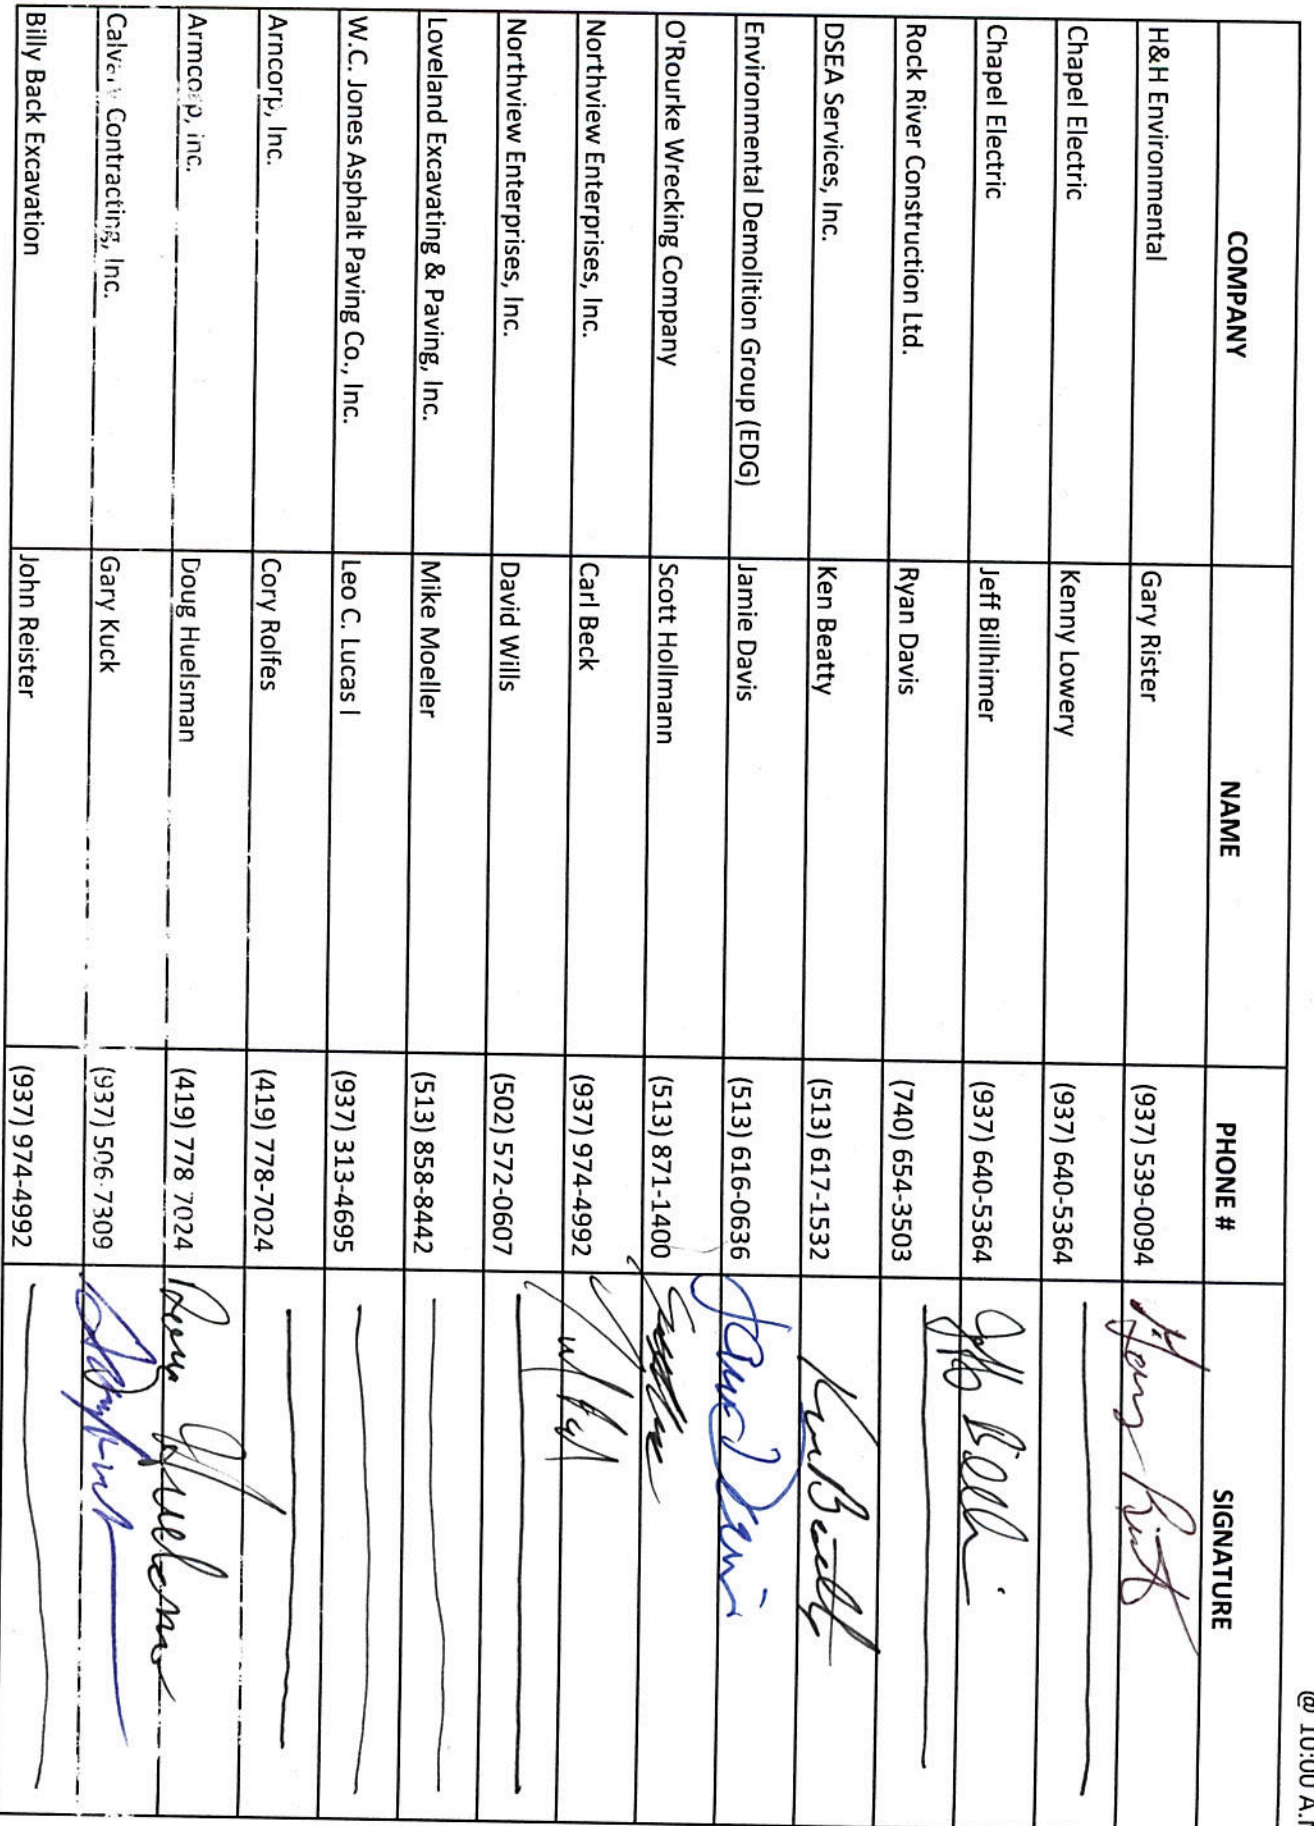 @ 10:00 A.
COMPANY NAME PHONE # SIGNATURE
H&H Environmental Gary Rister (937) 539-0094
Chapel Electric Kenny Lowery (937) 640-5364
Chapel Electric Jeff Billhimer (937) 640-5364 Jeff
Rock River Construction Ltd. Ryan Davis (740) 654-3503
DSEA Services, Inc. Ken Beatty (513) 617-1532 Ken Beatty
Environmental Demolition Group (EDG) Jamie Davis (513) 616-0636 Jamie Davis
O'Rourke Wrecking Company Scott Hollmann (513) 871-1400
Northview Enterprises, Inc. Carl Beck (937) 974-4992
Northview Enterprises, Inc. David Wills (502) 572-0607
Loveland Excavating & Paving, Inc. Mike Moeller (513) 858-8442
W.C. Jones Asphalt Paving Co., Inc. Leo C. Lucas I (937) 313-4695
Arncorp, Inc. Cory Rolfes (419) 778-7024
Armcorp, inc. Doug Huelsman (419) 778 7024 Doug Huelsman
Calvary Contracting, Inc. Gary Kuck (937) 506-7309
Billy Back Excavation John Reister (937) 974-4992